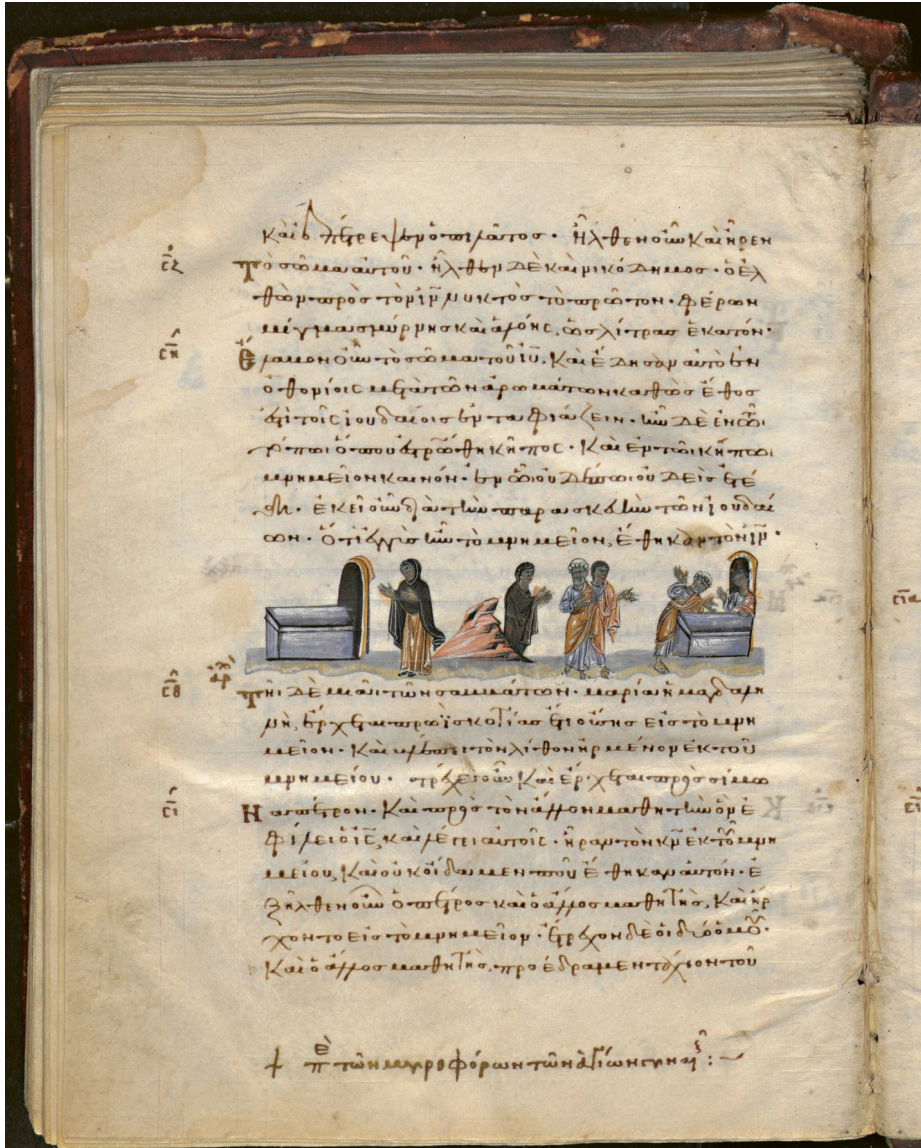 καὶ ἐπέτρεψεν ὁ πιλάτος· ἦλθεν οὖν καὶ ἦρεν
τὸ σῶμα αὐτοῦ· ἦλθεν δὲ καὶ νικόδημος· ὁ ἐλ
θὼν πρὸς τὸν ἰν νυκτὸς τὸ πρῶτον· φέρων
μίγμα σμύρνης καὶ ἀλόης, ὡς λίτρας ἑκατόν·
ἔλαβον οὖν τὸ σῶμα τοῦ ἰυ, καὶ ἔδησαν αὐτὸ ἐν
ὀθονίοις μετὰ τῶν ἀρωμάτων καθὼς ἔθος
ἐστὶ τοῖς ἰουδαίοις ἐνταφιάζειν· ἦν δὲ ἐν τῶι
τόπωι ὅπου ἐστρώθη κῆπος· καὶ ἐν τῶι κήπωι
μνημεῖον καινόν· ἐν ὧι οὐδέπω οὐδεὶς ἐτέ
θη· ἐκεῖ οὖν διὰ τὴν παρασκευὴν τῶν ἰουδαί
ων· ὅτι ἐγγὺς ἦν τὸ μνημεῖον, ἔθηκαν τὸν ἰν·
τῆι δὲ μιᾶι τῶν σαββάτων· μαρία ἡ μαγδαλη
νὴ, ἔρχεται πρωῒ σκοτίας ἔτι οὔσης εἰς τὸ μνη
μεῖον· καὶ βλέπει τὸν λίθον ἠρμένον ἐκ τοῦ
μνημείου· τρέχει οὖν καὶ ἔρχεται πρὸς σίμω
να πέτρον· καὶ πρὸς τὸν ἄλλον μαθητὴν ὃν ἐ
φίλει ὁ ις, καὶ λέγει αὐτοῖς· ἦραν τὸν κν ἐκ τοῦ μνη
μείου, καὶ οὐκ οἴδαμεν ποῦ ἔθηκαν αὐτόν· ἐ
ξῆλθεν οὖν ὁ πέτρος καὶ ὁ ἄλλος μαθητὴς, καὶ ἤρ
χοντο εἰς τὸ μνημεῖον· ἔτρεχον δὲ οἱ δύο ὁμοῦ·
καὶ ὁ ἄλλος μαθητὴς προέδραμεν τάχιον τοῦ
τῶν μυροφόρων τῶν ἁγίων